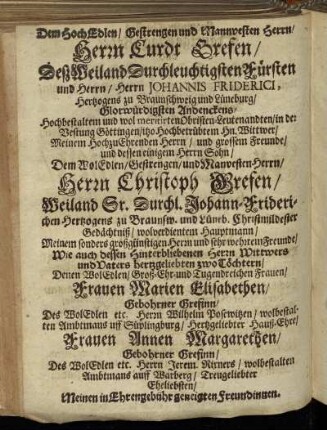 Dem HochEdlen/ Gestrengen und Mannvesten Herrn/
Herrn Curdt Grefen/
Deß Weiland Durchleuchtigsten Fürsten
und Herrn/ Herrn JOHANNIS FRIDERICI,
Hertzogens zu Braunschweig und Lüneburg/
Glorwürdigsten Andenckens/
Hochbestaltem und wol meritirten Obristen-Leutenandten/in der
Vestung Göttingen/itzo Hochbetrübtem Hn. Wittwer/
Meinem HochzuEhrenden Herrn/ und grossem Freunde/
und dessen einigem Herrn Sohn/
Dem WolEdlen/ Gestrengen/und ManvestenHerrn/
Herrn Christoph Grefen/
Weiland Sr. Durchl. Johann-Frideri-
chen Hertzogens zu Braunsw. und Lüneb. Christmildester
Gedächtniß/ wolverdientem Hauptmann/
Meinem sonders großgünstigen Herrn und sehr wehrtem Freunde/
Wie auch dessen Hinterbliebenen Herrn Wittwers
und Vaters hertzgeliebten zwo Töchtern/
Denen WolEdlen/ Groß-Ehr-und Tugendreichen Frauen/
Frauen Marien Elisabethen/
Gebohrner Grefinn/
Des WolEdlen etc. Herrn Wilhelm Posewitzen/ wolbestal-
ten Ambtmans uff Süplingburg/ Hertzgeliebter Hauß-Ehre/
Frauen Annen Margarethen/
Gebohrner Grefinn/
Des WolEdlen etc. Herrn Jerem. Rixners/ wolbestalten
Ambtmans auff Warberg/ Treugeliebter
Eheliebsten/
Meinen in Ehrengebühr geneigten Freundinnen.